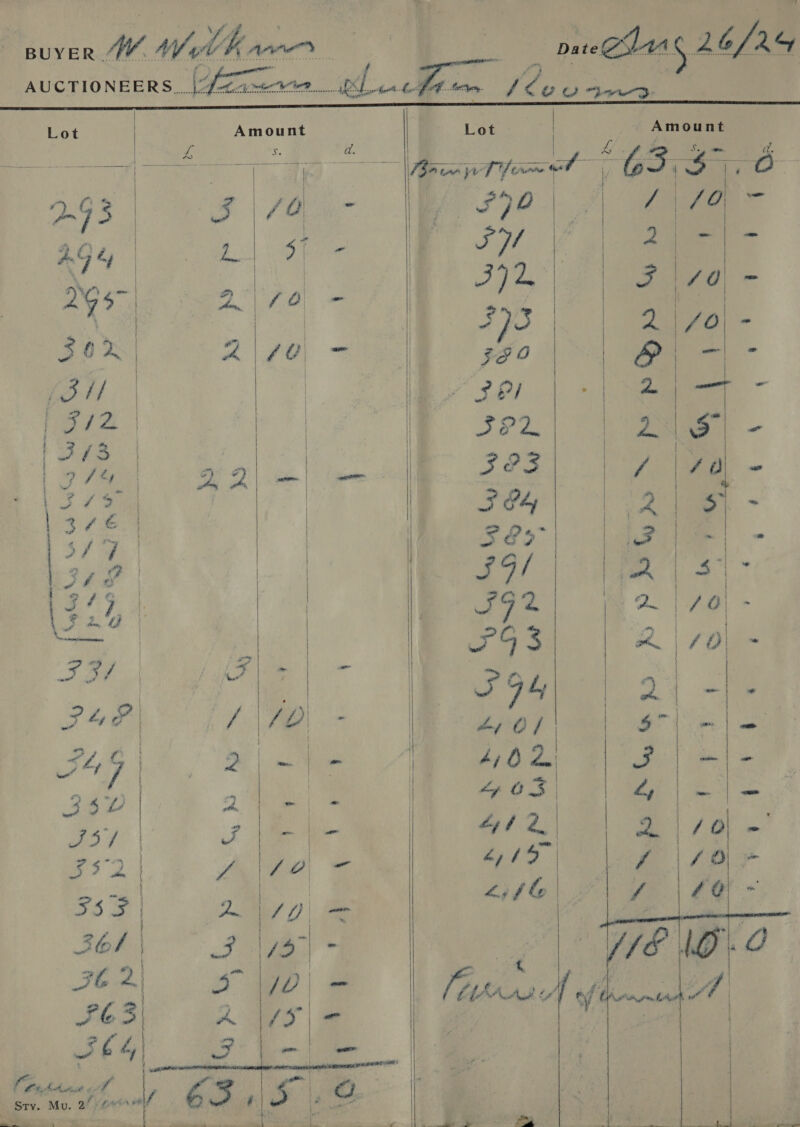 BUYER W. Wilkins Date Aug 26/24
AUCTIONEERS Stevens Auction Rooms
Lot Amount
£ s. d.
293 3 10 -
294 2 5 -
295 2 10 -
302 2 10 -
311
312
313
314 22 - -
315
316
317
318
319
320
331 3 - -
348 1 10 -
349 2 - -
350 2 - -
351 3 - -
352 1 10 -
353 2 10 -
361 3 15 -
362 5 10 -
363 2 15 -
364 3 - -
Carried forward 63.5.0
Sty. Mu. 2
Lot Amount
£ s. d.
Brought forward 63.5.0
370 1 10 -
371 2 - -
372 3 10 -
373 2 10 -
380 8 - -
381 2 - -
382 2 5 -
383 1 10 -
384 2 5 -
385 3 - -
391 2 5 -
392 2 10 -
393 2 10 -
394 2 - -
401 5 - -
402 3 - -
403 4 - -
412 2 10 -
415 1 10 -
416 1 10 -
118 10.0
Carried forward